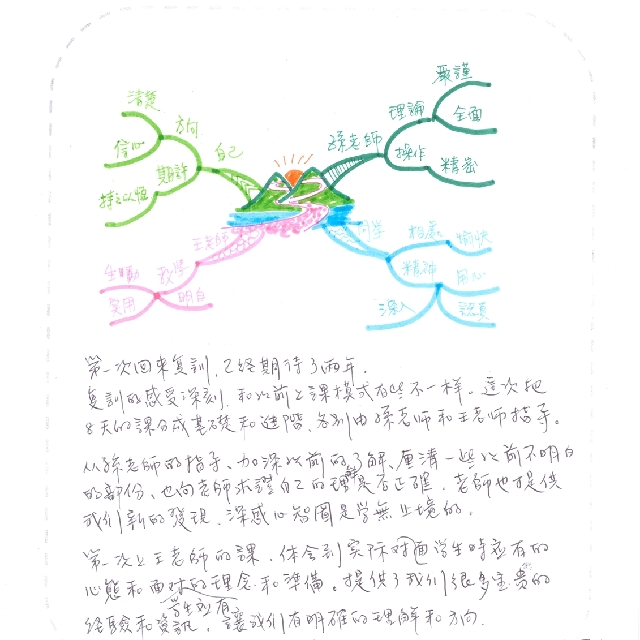 嚴謹
理論
全面
孫老師
操作
精密
同學
相處
愉快
精神
用心
認真
深入
王老師
教學
生動
實用
明白
自己
方向
清楚
信心
期許
持之以恆
第一次回來复訓，已經期待了兩年．
复訓的感受深刻，和以前上課模式有些不一樣．這次把
8天的課分成基礎和進階，各別由孫老師和王老師指導。
從孫老師的指導、加深以前的了解、厘清一些以前不明白
的部份、也向老師求證自己的理解是否正確．老師也提供
我們新的發現．深感心智圖是學無止境的．
第一次上王老師的課．体会到实际对面學生時應有的
心態和面对的理念和準備。提供了我們很多宝贵的
學生型有
經驗和資訊，讓我们有明確的理解和方向．